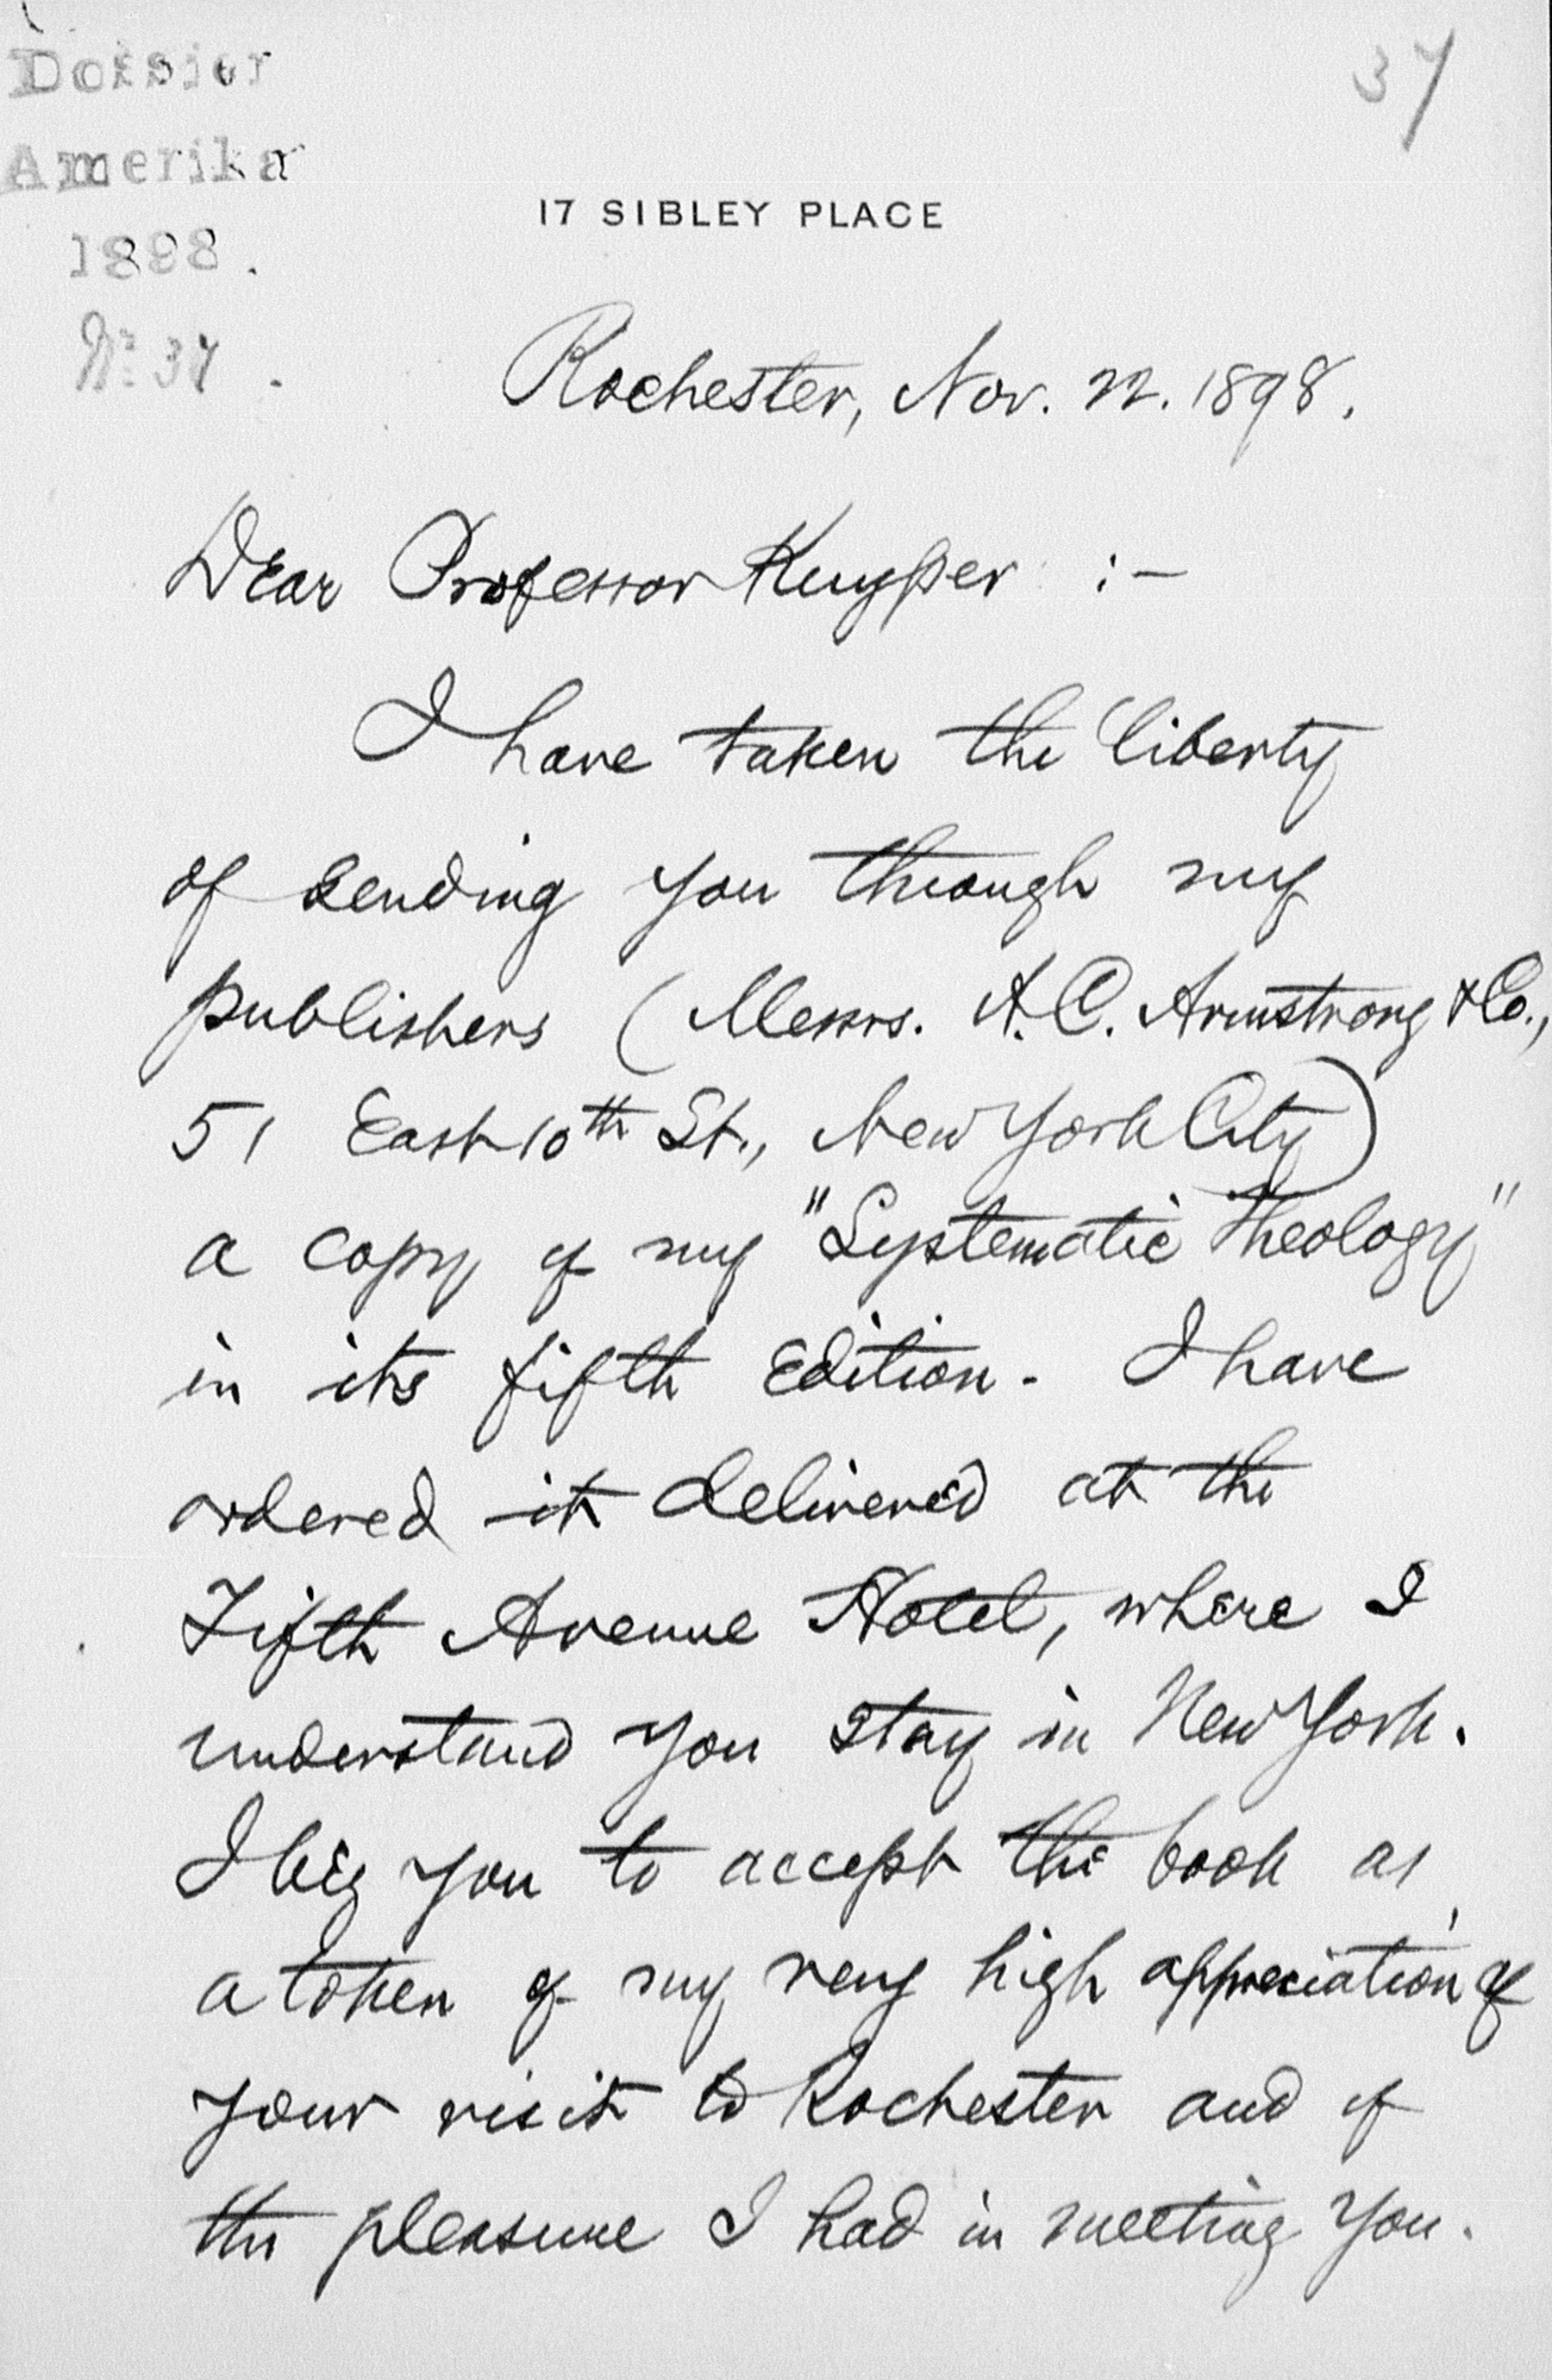 Dossier
Amerika
1898.
No 37.
37
17 SIBLEY PLACE
Rochester, Nov. 22. 1898.
Dear Professor Kuyper :-
I have taken the liberty
of sending you through my
publishers (Messrs. A. C. Armstrong & Co.,
51 East 10th St., New York City)
a copy of my "Systematic Theology"
in its fifth Edition. I have
ordered it delivered at the
Fifth Avenue Hotel, where I
understand you stay in New York.
I beg you to accept the book as
a token of my very high appreciation of
your visit to Rochester and of
the pleasure I had in meeting you.